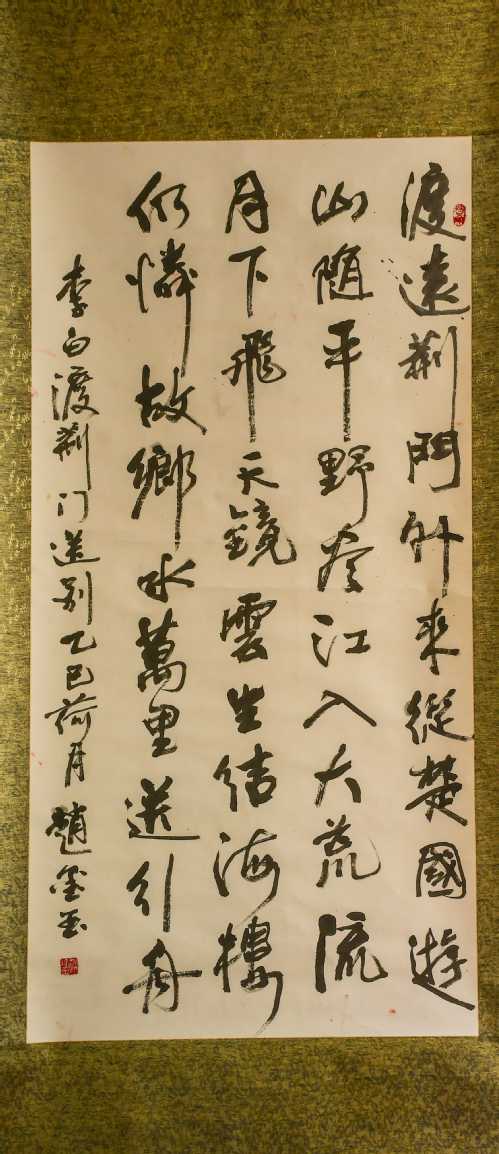 渡遠荊門外來從楚國遊
山隨平野盡江入大荒流
月下飛天鏡雲生結海樓
仍憐故鄉水萬里送引舟
李白渡荊门送别乙巳荷月趙墨玉